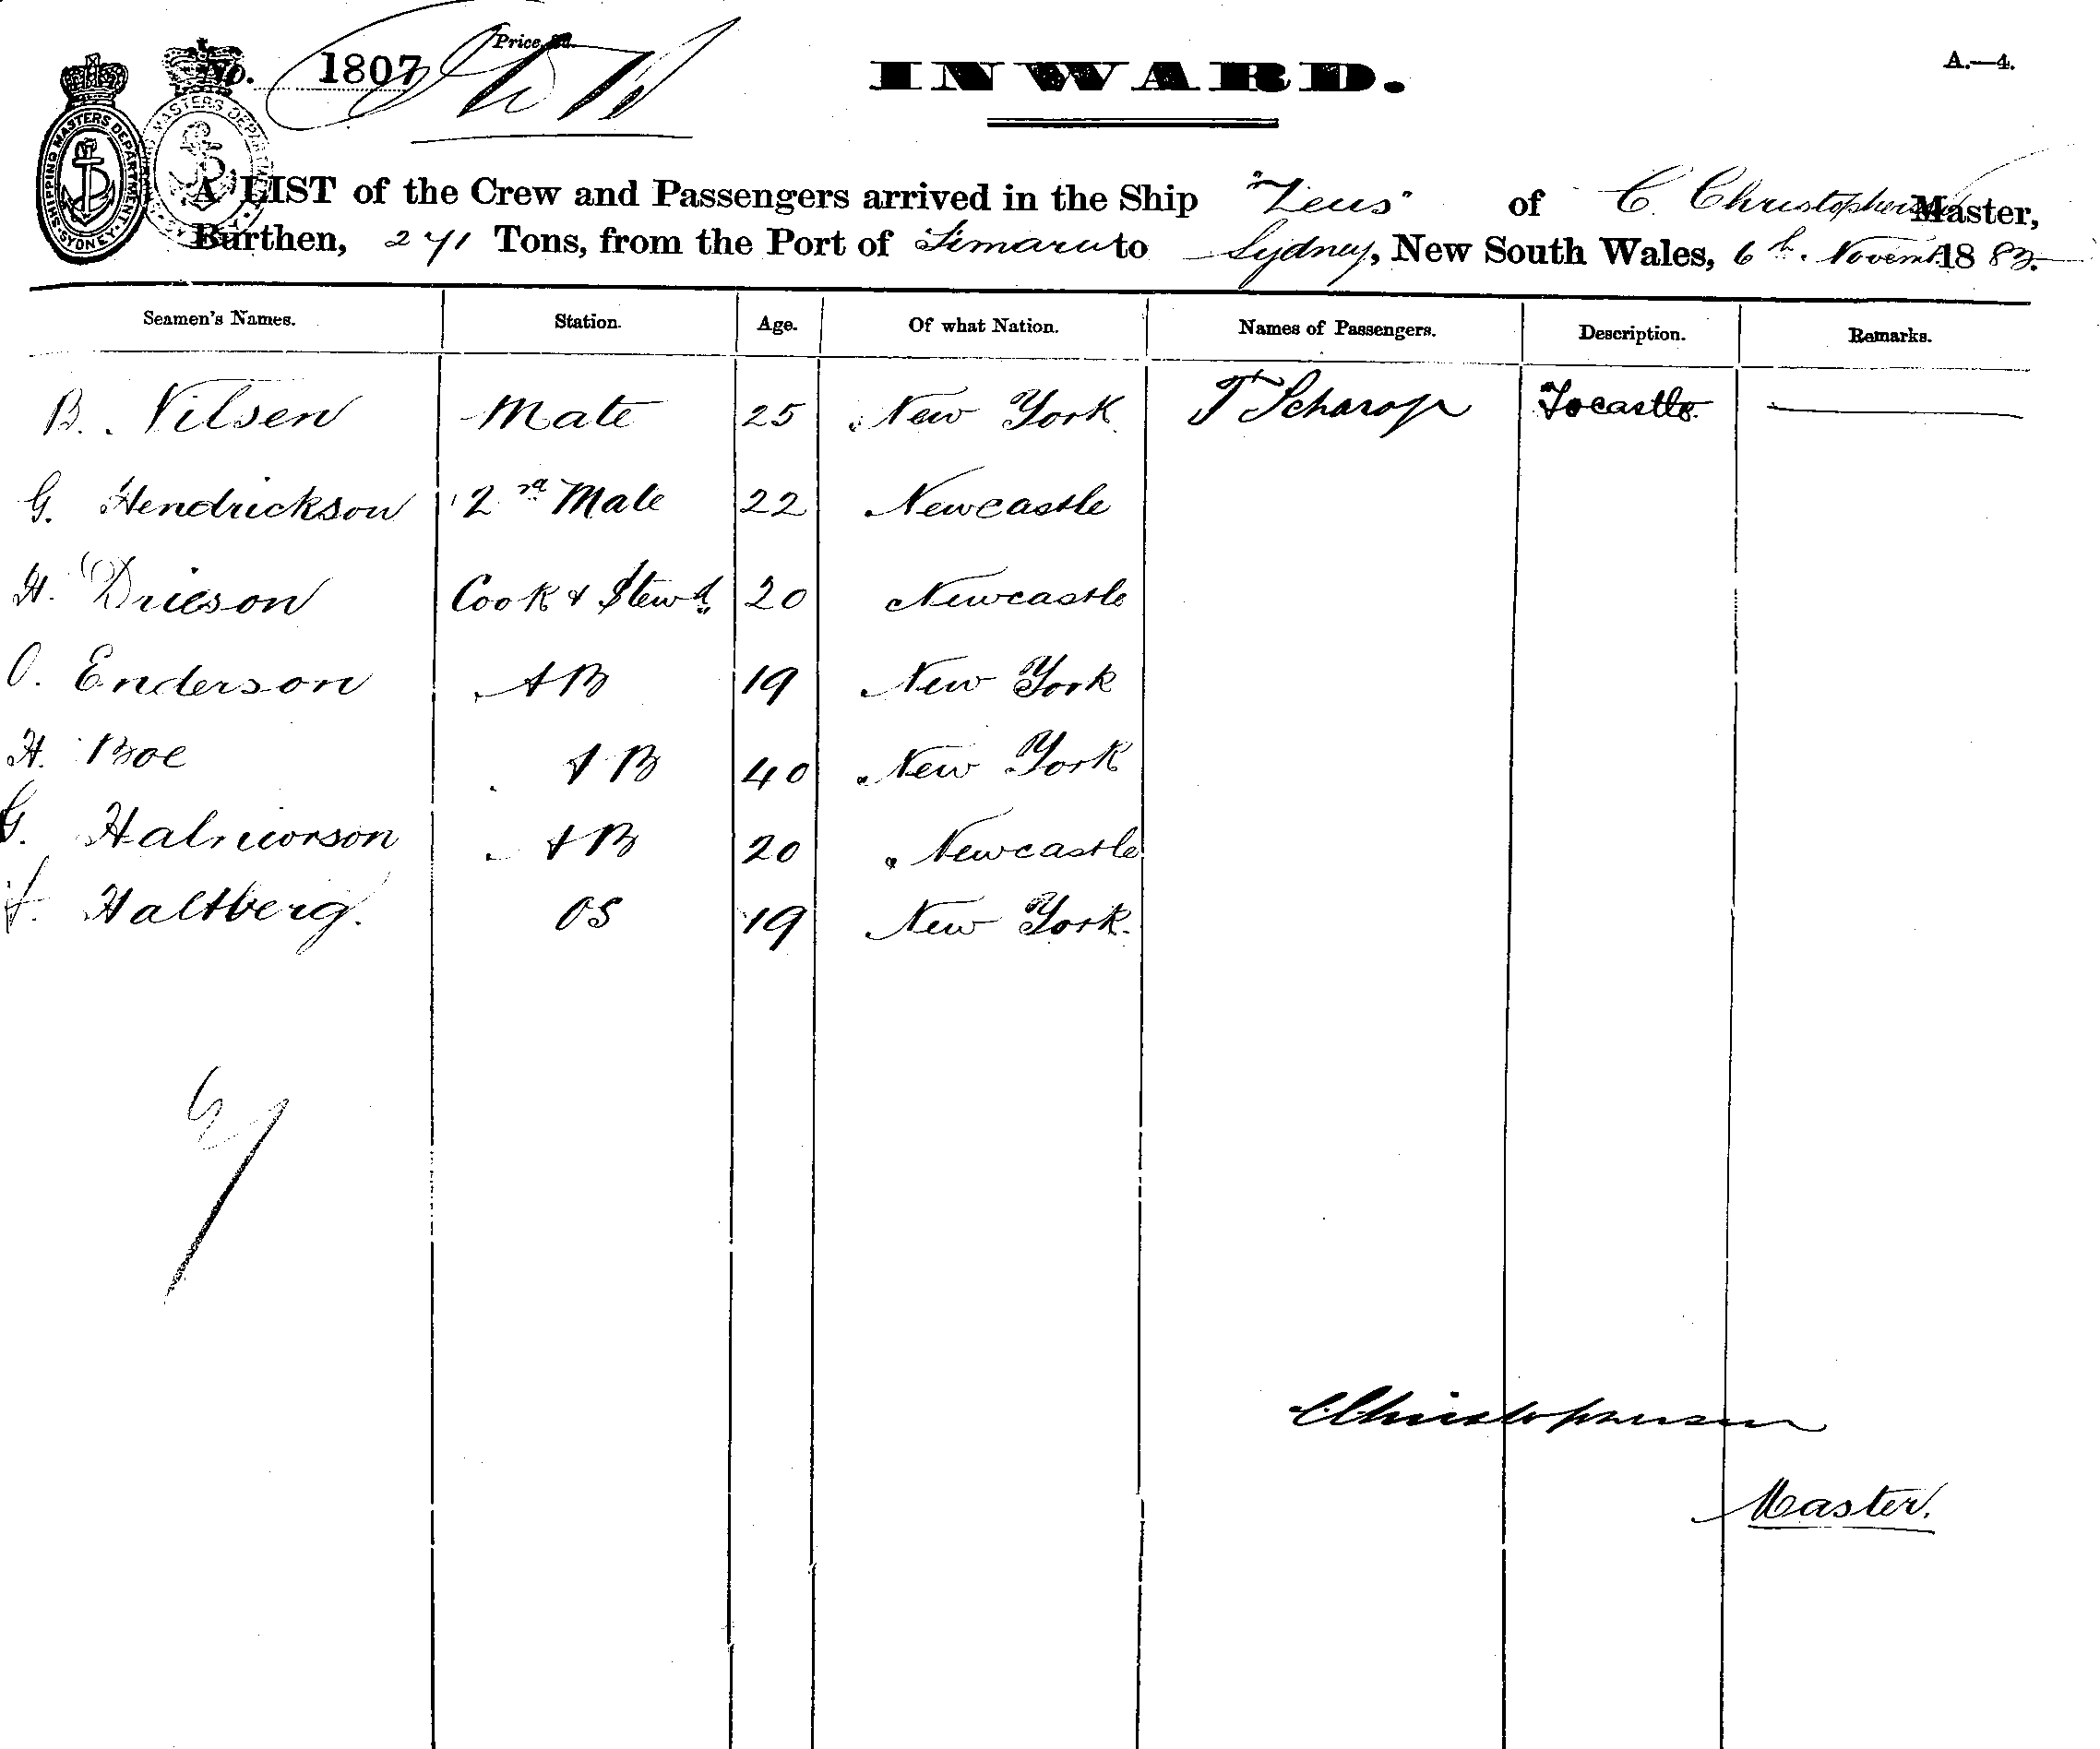 No. 1807
Price
INWARD.
A.—4.
SHIPPING MASTERS DEPARTMENT SYDNEY
A LIST of the Crew and Passengers arrived in the Ship "Zeus" of C. Christophersen Master,
Burthen, 241 Tons, from the Port of Timaru to Sydney, New South Wales, 6th. Novem. 1883.
Seamen's Names. Station. Age. Of what Nation. Names of Passengers. Description. Remarks.
B. Nilsen Mate 25 New York T Scharop Focastle.
G. Hendrickson 2nd Mate 22 Newcastle
H. Drieson Cook & Stewd. 20 Newcastle
O. Enderson AB 19 New York
H. Boe AB 40 New York
G. Halmorson AB 20 Newcastle
Haltberg. OS 19 New York.
C Christophersen
Master.